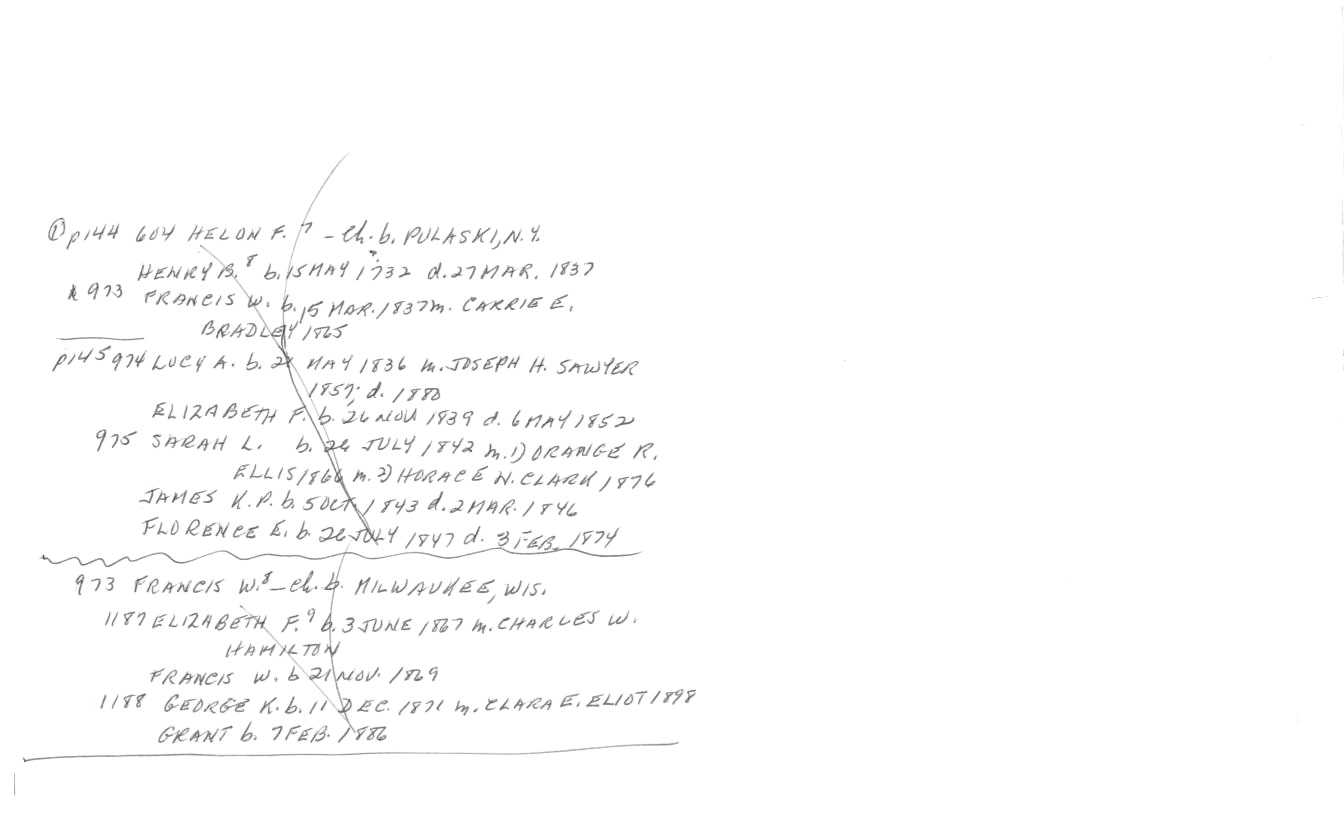 ① p144 604 HELON F.⁷ - Ch. b. PULASKI, N.Y.
HENRY B.⁸ b. 15 MAY 1732 d. 27 MAR. 1837
973 FRANCIS W. b. 15 MAR. 1837 m. CARRIE E.
BRADLEY 1865
p145 974 LUCY A. b. MAY 1836 m. JOSEPH H. SAWYER
1857; d. 1880
ELIZABETH F. b. 26 NOV 1839 d. 6 MAY 1852
975 SARAH L. b. JULY 1842 m. 1) ORANGE R.
ELLIS 1866 m. 2) HORACE N. CLARK 1876
JAMES K.P. b. 5 OCT. 1843 d. 2 MAR. 1846
FLORENCE E. b. JULY 1847 d. 3 FEB. 1874
973 FRANCIS W.⁸ - Ch. b. MILWAUKEE, WIS.
1187 ELIZABETH F.⁹ b. 3 JUNE 1867 m. CHARLES W.
HAMILTON
FRANCIS W. b 21 NOV. 1869
1188 GEORGE K. b. 11 DEC. 1871 m. CLARA E. ELIOT 1898
GRANT b. 7 FEB. 1886